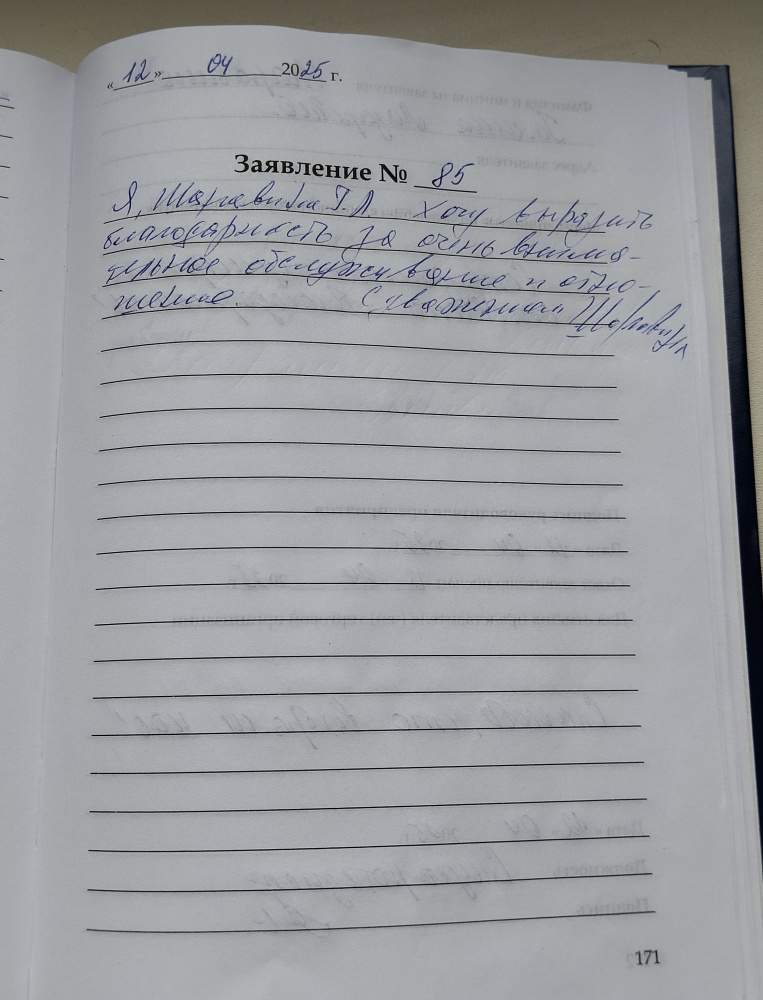 «12» 04 2025 г.
Заявление № 85
Я, Т.Л. хочу выразить
благодарность за очень внима-
тельное обслуживание и отно-
шение. С уважением
171